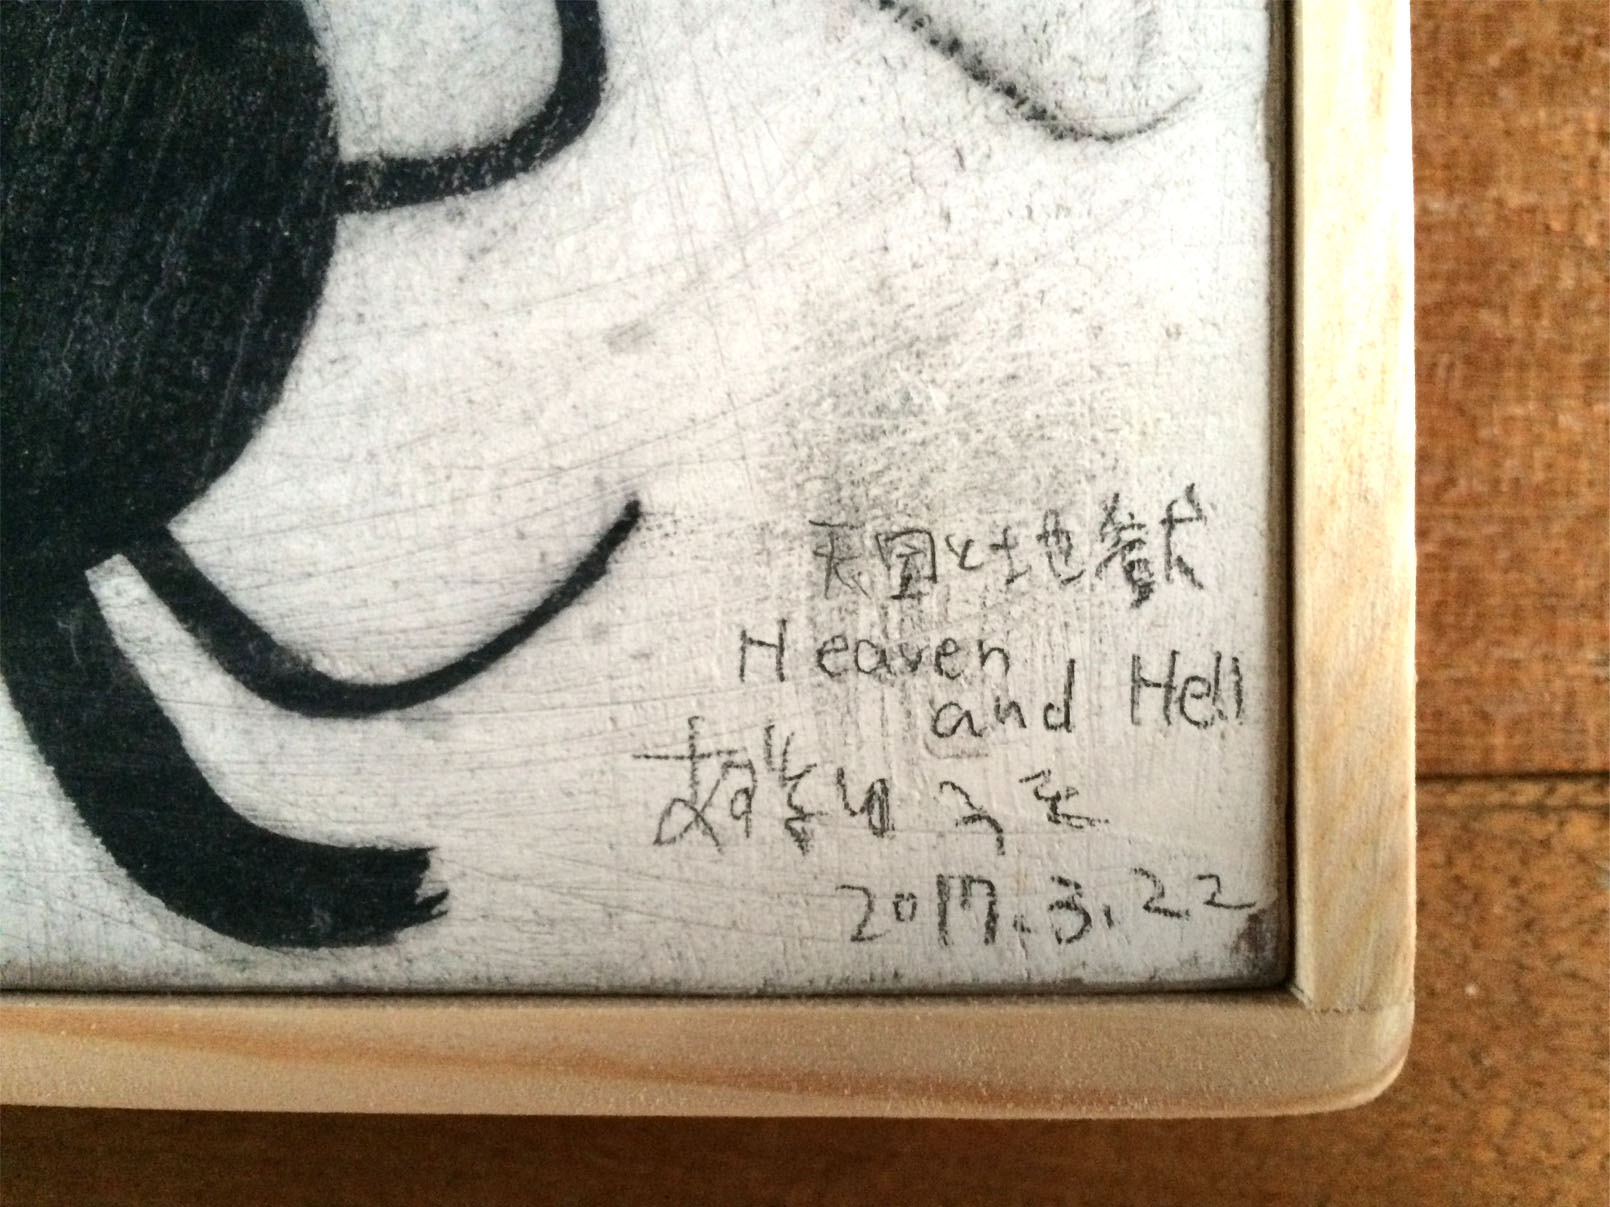 天国と地獄
Heaven
and Hell
2017.3.22